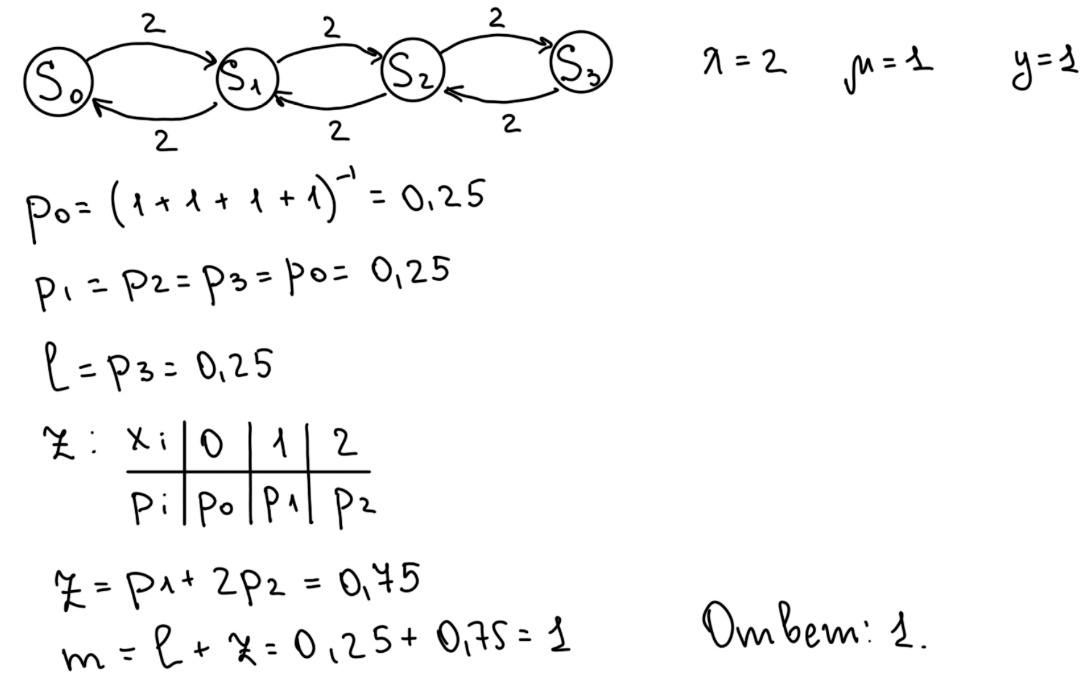 2 2 2
S₀ S₁ S₂ S₃ λ = 2 μ = 1 y = 1
2 2 2
p₀ = (1 + 1 + 1 + 1)⁻¹ = 0,25
p₁ = p₂ = p₃ = p₀ = 0,25
l = p₃ = 0,25
z : xᵢ | 0 | 1 | 2
pᵢ | p₀ | p₁ | p₂
z = p₁ + 2p₂ = 0,75
m = l + z = 0,25 + 0,75 = 1 Ответ: 1.